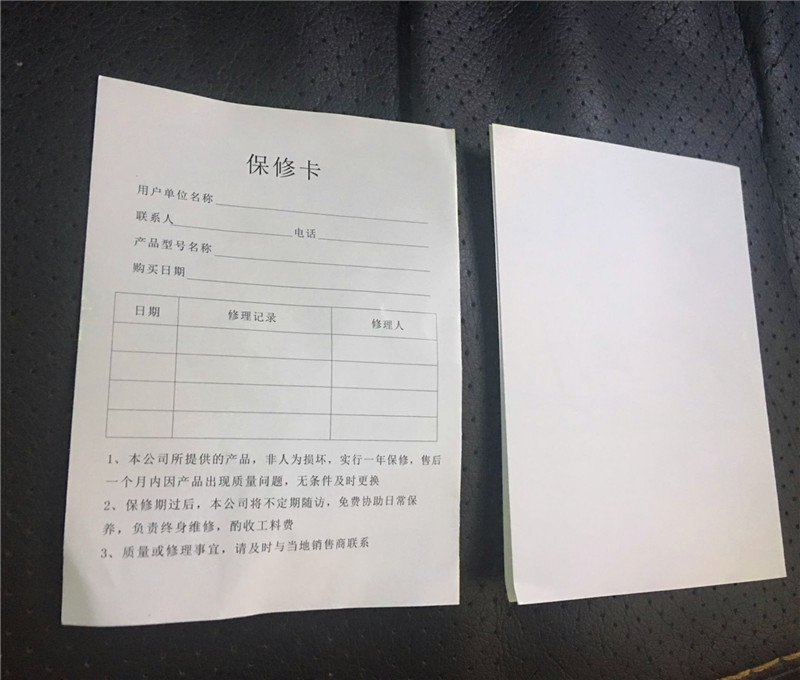 保修卡
用户单位名称
联系人 电话
产品型号名称
购买日期
日期 修理记录 修理人
1、本公司所提供的产品，非人为损坏，实行一年保修，售后
一个月内因产品出现质量问题，无条件及时更换
2、保修期过后，本公司将不定期随访，免费协助日常保
养，负责终身维修，酌收工料费
3、质量或修理事宜，请及时与当地销售商联系